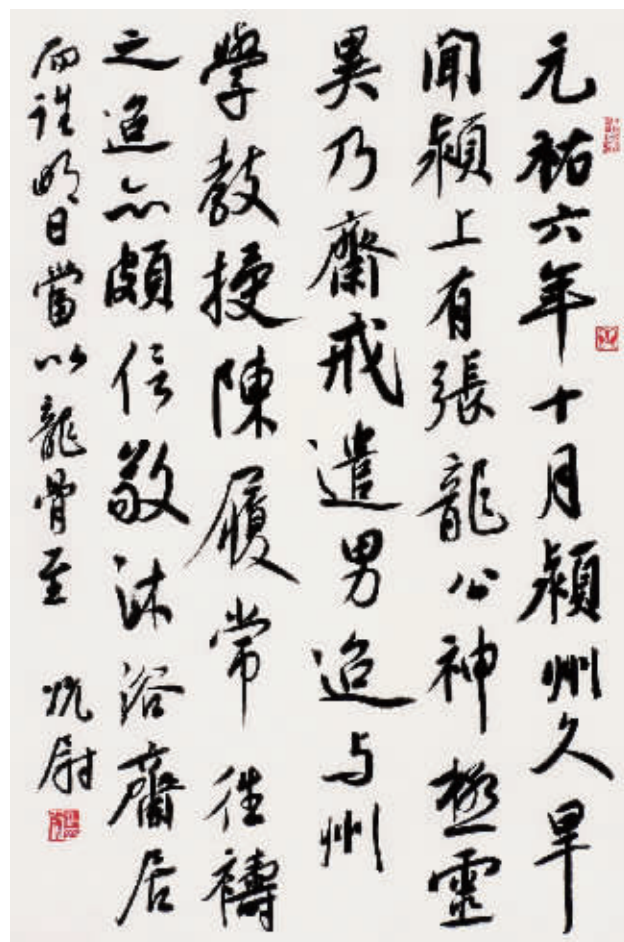 元祐六年十月颍州久旱
闻颍上有張龍公神極靈
異乃齋戒遣男迨与州
學教授陳履常往禱
之迨亦頗信敬沐浴齋居
而往明日當以龍骨至